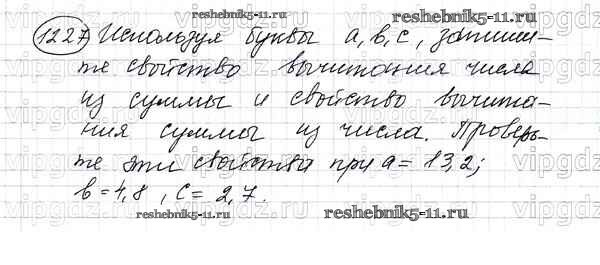 reshebnik5-11.ru
1227 Используя буквы a, b, c, запиши-
те свойство вычитания числа
из суммы и свойство вычита-
ния суммы из числа. Проверь-
те эти свойства при a = 13,2;
b = 4,8, c = 2,7.
reshebnik5-11.ru reshebnik5-11.ru